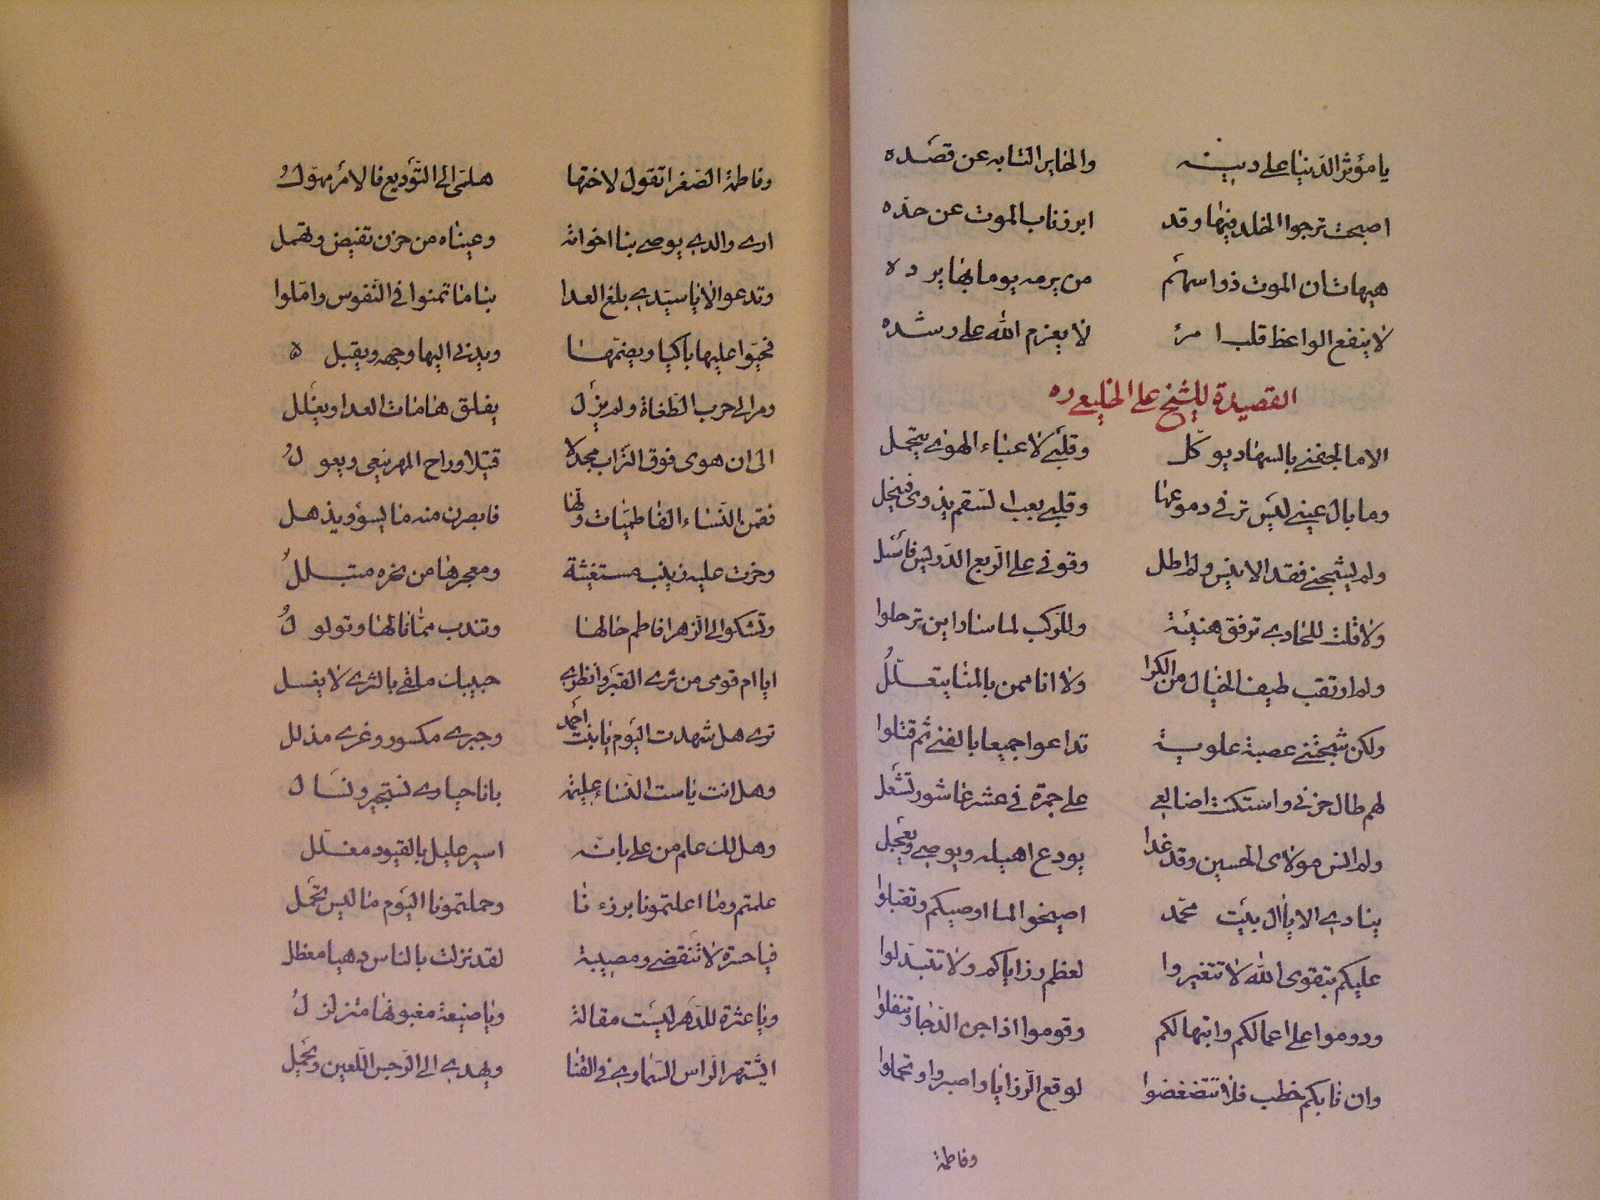 يا مؤثر الدنيا على دينه والحاير التايه عن قصده
اصبحت ترجوا الخلد فيها وقد ابرز ناب الموت عن حده
هيهات ان الموت ذو اسهم من يرمه يوما بها يرده
لا ينفع الواعظ قلب امرئ لا يعزم الله على رشده
القصيدة للشيخ على الخليعى ره
الا ما لجفنى بالسهاد يوكل وقلبى لاعباء الهوى يتحمل
وما بال عينى ليس ترقى دموعها وقلبى بعب السقم يذوى فينحل
ولم يشجنى فقد الانيس ولم اطل وقوفى على الربع الدريس فاسئل
ولا قلت للحادى ترفق هنيئة وللركب لما سار اين ترحلوا
ولم ارتقب طيف الخيال من الكرا ولا انا ممن بالمنا يتعلل
ولكن شجتنى عصبة علوية تداعوا جميعا بالفنى ثم قتلوا
لهم طال حزنى واستكت اضالعى على جمرة فى عشر عاشور تشعل
ولم انس مولاى الحسين وقد غدا يودع اهيله ويوصى ويعجل
ينادى الا يا ال بيت محمد اصيخوا لما اوصيكم وتقبلوا
عليكم بتقوى الله لا تتغيروا لعظم رزاياكم ولا تتبدلوا
ودوموا على اعمالكم وابتهالكم وقوموا اذا جن الدجا وتنفلوا
وان نابكم خطب فلا تتضعضعوا لوقع الرزايا واصبروا وتحملوا
وفاطمة
وفاطمة الصغرا تقول لاختها هلمى الى التوديع فالامر مهول
ارى والدى يوصى بنا اخواته وعيناه من حزن تفيض وتهمل
وتدعوا الا يا سيدى بلغ العدا بنا ما تمنوا فى النفوس واملوا
فحنوا عليها باكيا ويضمها ويدنى اليها وجهه ويقبل
ومر الى حرب الطغاة ولم يزل يفلق هامات العدا ويغلل
الى ان هوى فوق التراب مجدلا قتيلا وراح المهر ينعى ويعول
فقمن النساء الفاطميات ولها فابصرن منه ما يسؤ ويذهل
وخرت عليه زينب مستغيثة ومعجرها من نحره متبلل
وتشكوا الى الزهرا فاطم حالها وتندب مما نالها وتولول
ايا ام قومى من ثرى القبر وانظرى حبيبك ملقى بالثرى لا يغسل
ترى هل شهدت اليوم يا بنت احمد وجبرى مكسور وغرى مذلل
وهل انت يا ست النساء عليمة بانا حيارى نستجير ونسال
وهل لك علم من على بانه اسير عليل بالقيود مغلل
علمتم وما اعلمتمونا برزءنا وحملتمونا اليوم ما ليس نحمل
فيا حسرة لا تنقضى ومصيبة لقد نزلت بالناس دهيا معظل
ويا عثرة للدهر ليست مقالة ويا ضيعة مغبونها متزلزل
ايشتهر الراس السماوى فى القنا ويهدى الى الرجس اللعين ويحمل